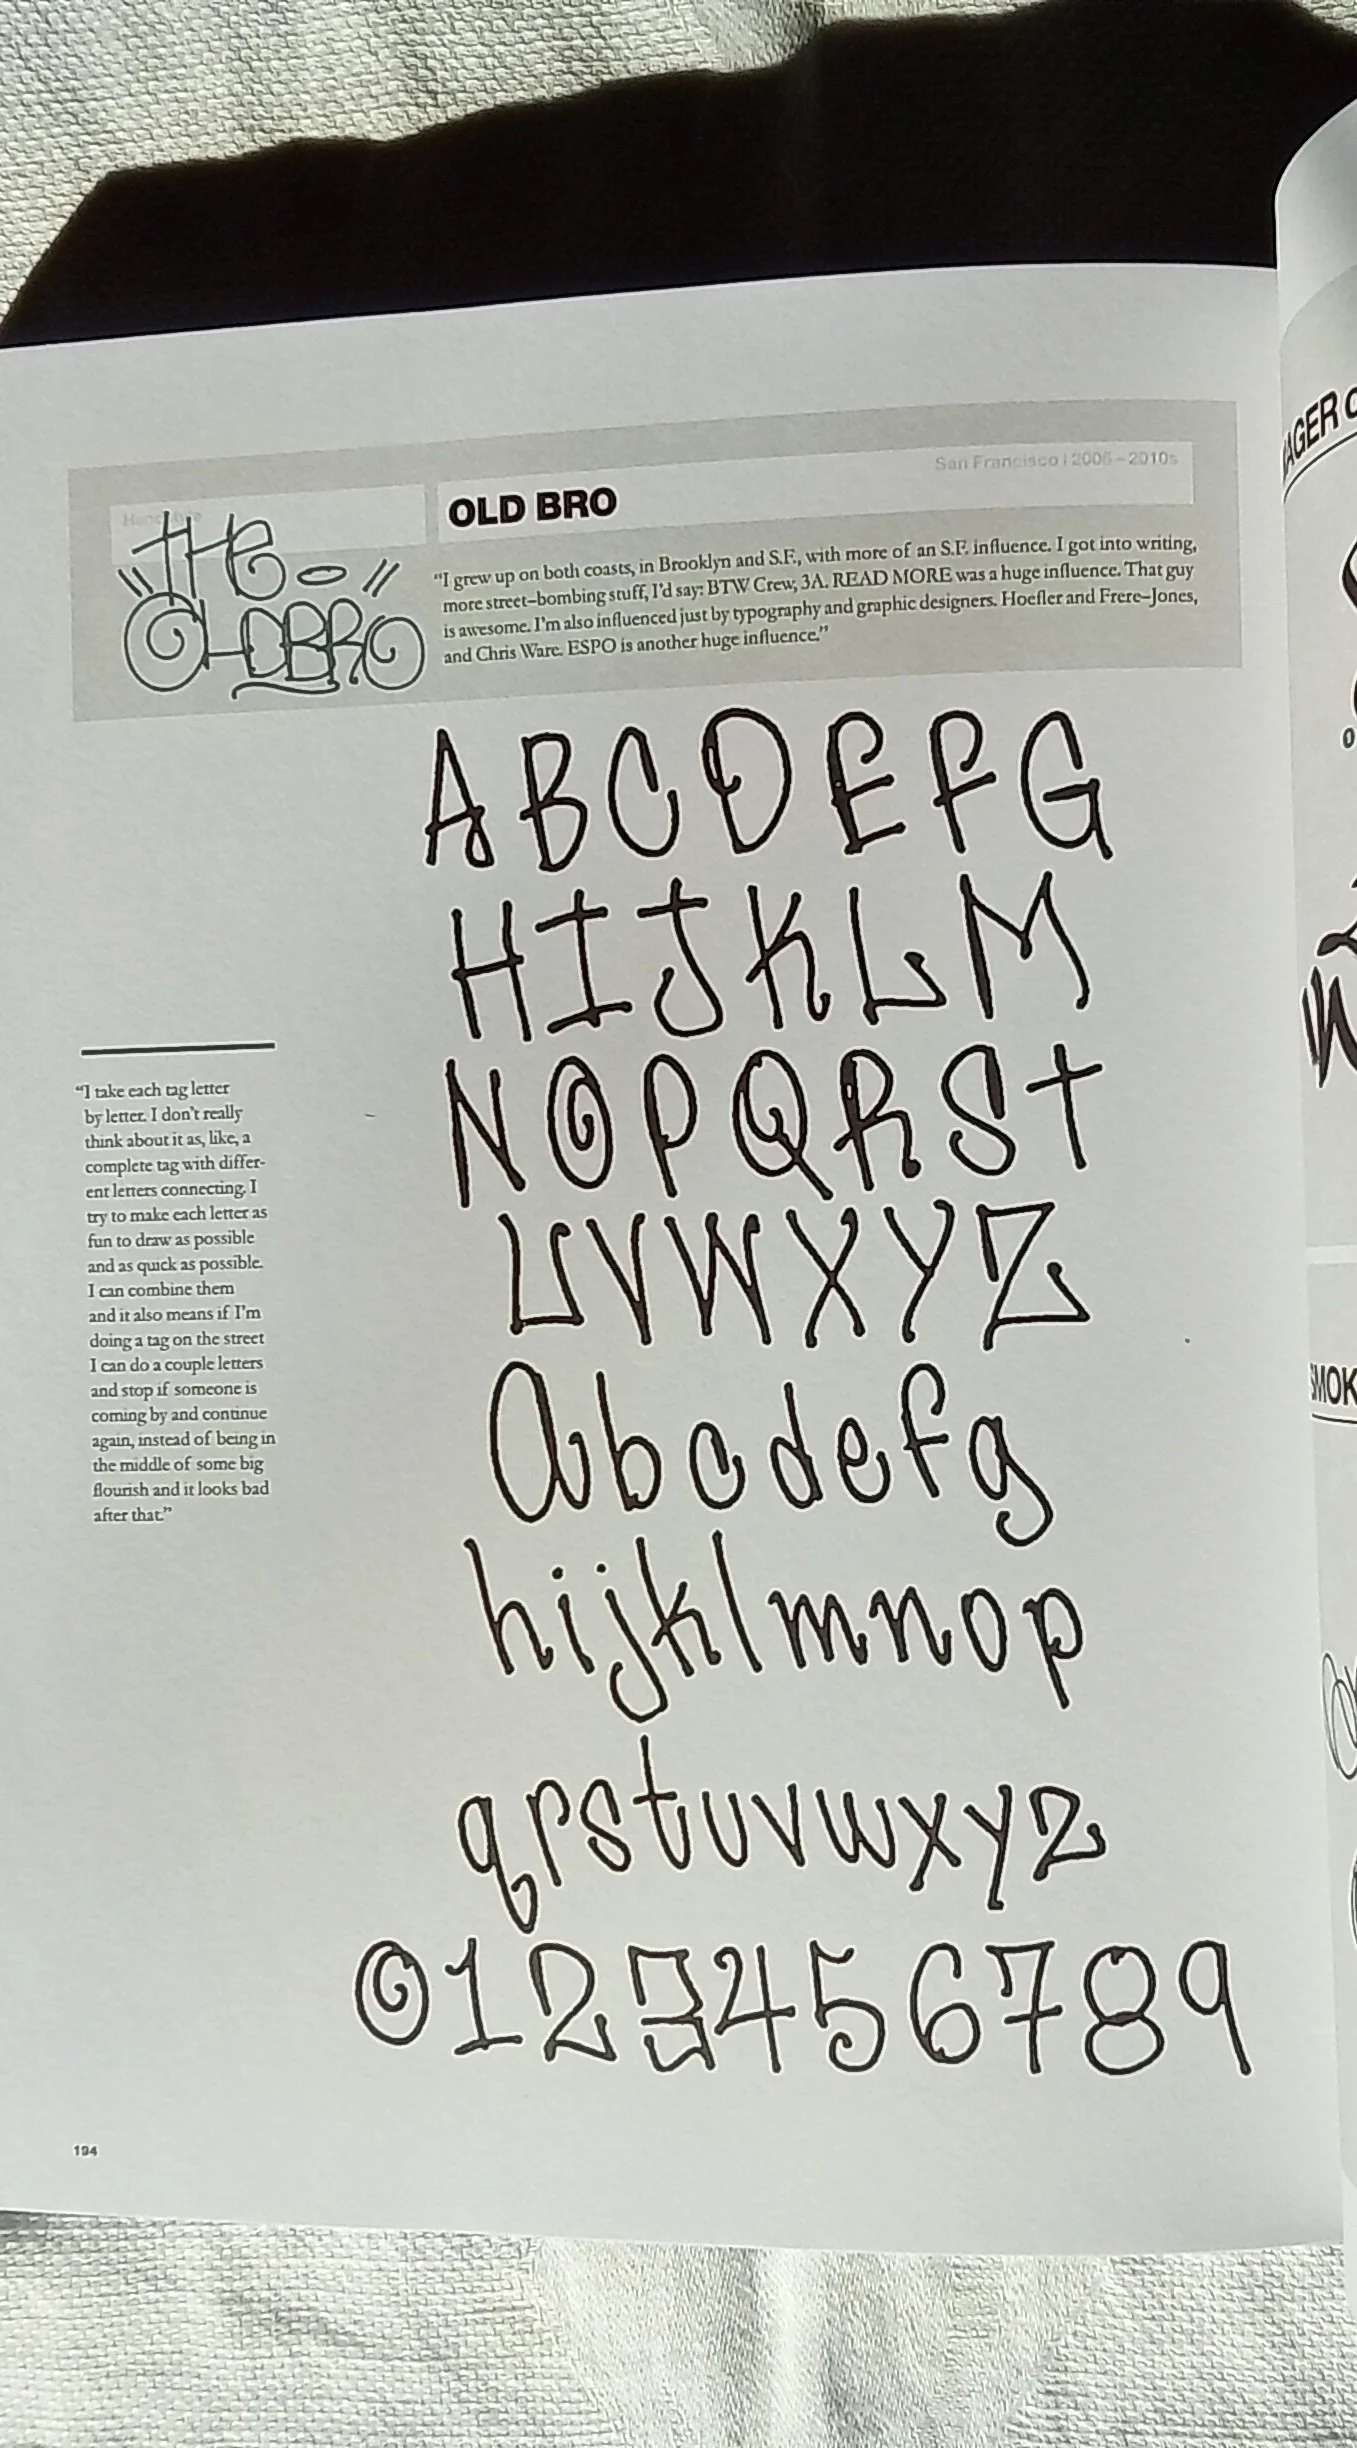 Handstyle
San Francisco | 2006–2010s
THE
OLDBRO
OLD BRO
“I grew up on both coasts, in Brooklyn and S.F., with more of an S.F. influence. I got into writing,
more street–bombing stuff, I’d say: BTW Crew, 3A. READ MORE was a huge influence. That guy
is awesome. I’m also influenced just by typography and graphic designers. Hoefler and Frere–Jones,
and Chris Ware. ESPO is another huge influence.”
“I take each tag letter
by letter. I don’t really
think about it as, like, a
complete tag with differ-
ent letters connecting. I
try to make each letter as
fun to draw as possible
and as quick as possible.
I can combine them
and it also means if I’m
doing a tag on the street
I can do a couple letters
and stop if someone is
coming by and continue
again, instead of being in
the middle of some big
flourish and it looks bad
after that.”
ABCDEFG
HIJKLM
NOPQRST
UVWXYZ
abcdefg
hijklmnop
qrstuvwxyz
0123456789
194